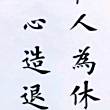 休退
為造
人心